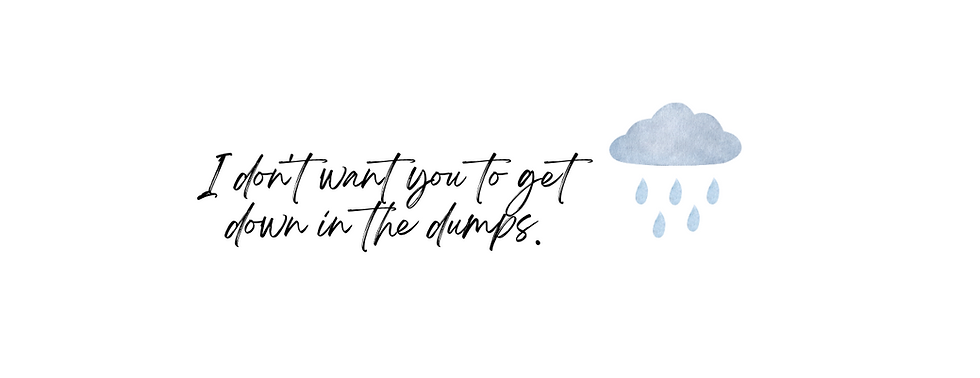 I don't want you to get
down in the dumps.